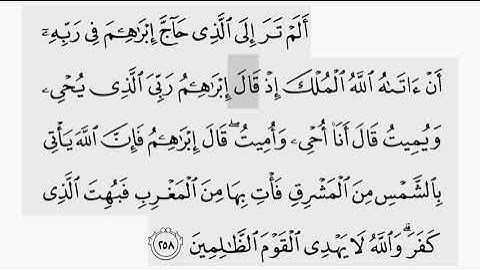 أَلَمْ تَرَ إِلَى ٱلَّذِى حَآجَّ إِبْرَٰهِـۧمَ فِى رَبِّهِۦٓ
أَنْ ءَاتَىٰهُ ٱللَّهُ ٱلْمُلْكَ إِذْ قَالَ إِبْرَٰهِـۧمُ رَبِّىَ ٱلَّذِى يُحْىِۦ
وَيُمِيتُ قَالَ أَنَا۠ أُحْىِۦ وَأُمِيتُ ۖ قَالَ إِبْرَٰهِـۧمُ فَإِنَّ ٱللَّهَ يَأْتِى
بِٱلشَّمْسِ مِنَ ٱلْمَشْرِقِ فَأْتِ بِهَا مِنَ ٱلْمَغْرِبِ فَبُهِتَ ٱلَّذِى
كَفَرَ ۗ وَٱللَّهُ لَا يَهْدِى ٱلْقَوْمَ ٱلظَّٰلِمِينَ ٢٥٨